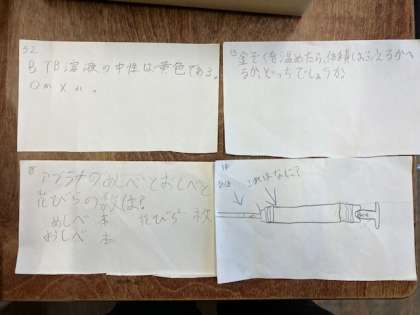 52
BTB溶液の中性は黄色である。
○m×m。
13
金ぞくを温めたら、体積はふえるかへ
るか、どっちでしょうか
8
アブラナのめしべとおしべと
花びらの数は?
めしべ 本 花びら 枚
おしべ 本
18
これはなに?